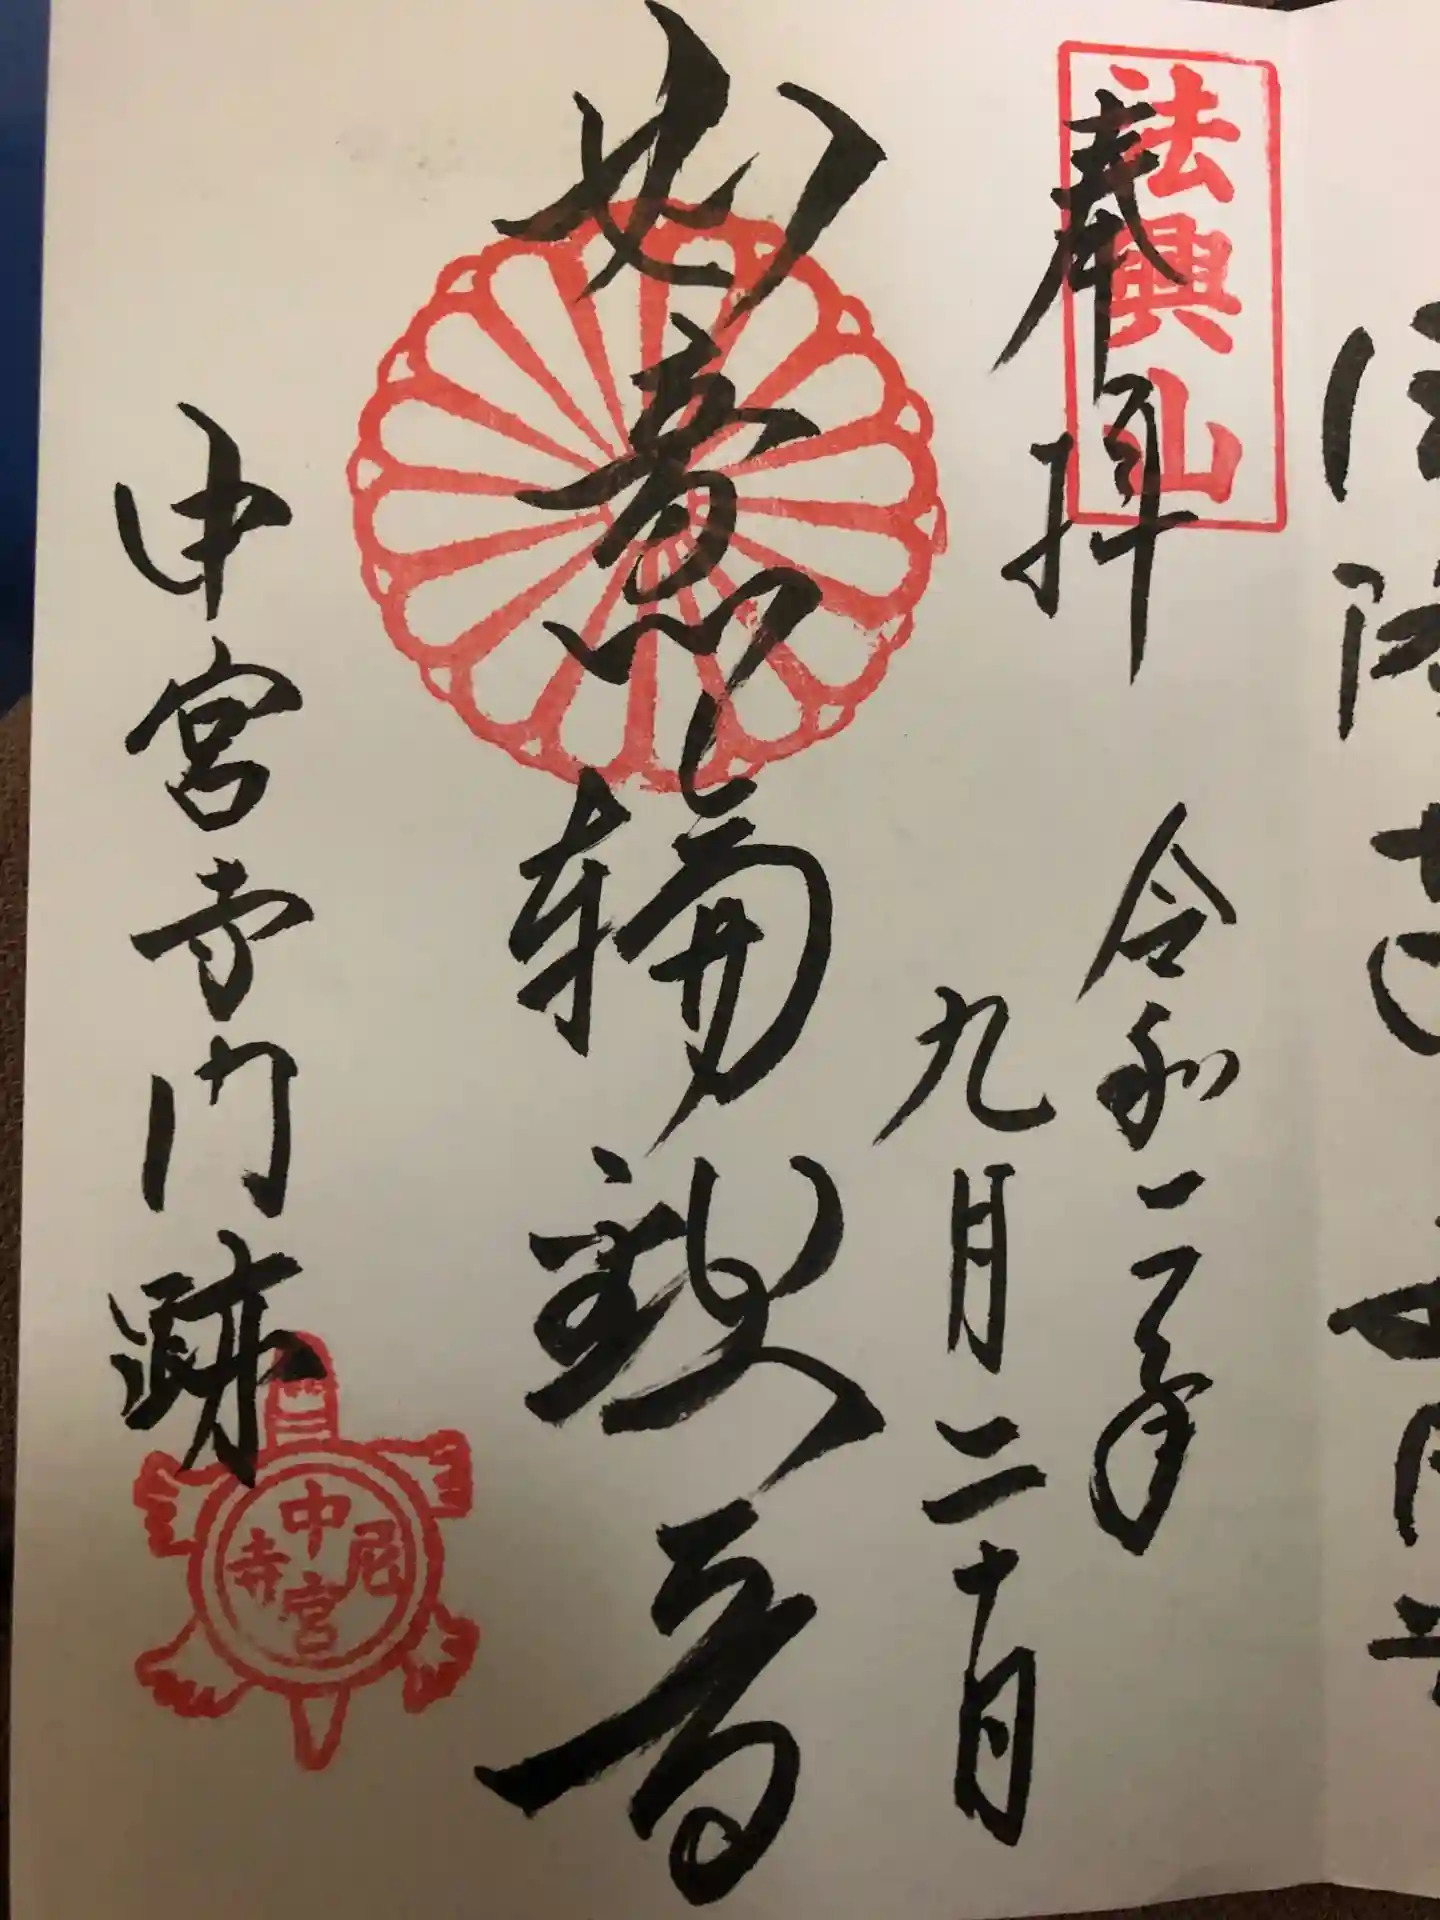 法興山
奉拝
令和二年
九月二十日
如意輪観音
中宮寺門跡
中宮尼寺